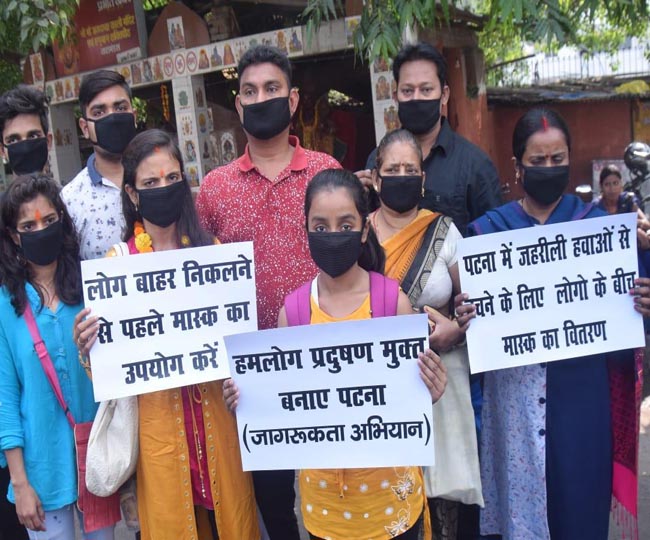 लोग बाहर निकलने
से पहले मास्क का
उपयोग करें
हमलोग प्रदुषण मुक्त
बनाए पटना
(जागरूकता अभियान)
पटना में जहरीली हवाओं से
बचने के लिए लोगो के बीच
मास्क का वितरण